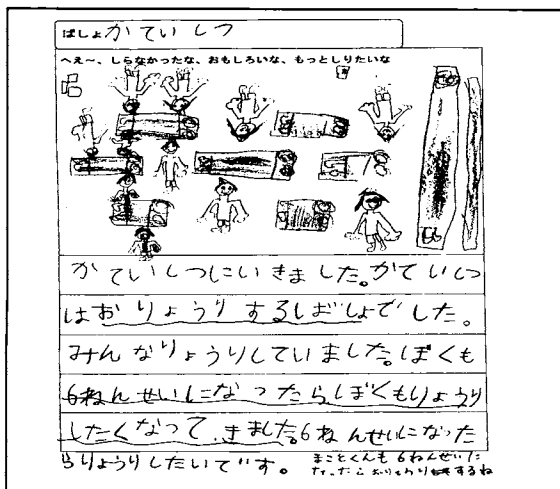 ばしょ かていしつ
へえ〜、しらなかったな、おもしろいな、もっとしりたいな
かていしつにいきました。かていしつ
はおりょうりするしばしょでした。
みんなりょうりしていました。ぼくも
6ねんせいになったらぼくもりょうり
したくなって、きました。6ねんせいになった
らりょうりしたいです。
まことくんも6ねんせいに
なったらおりょうりするね